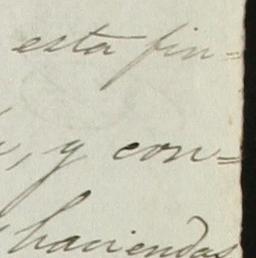 esta fin=
, y con=
haciendas